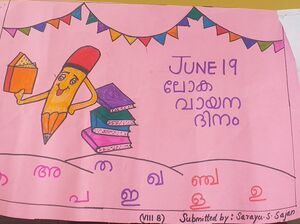 JUNE 19
ലോക
വായന
ദിനം
അ ത ഞ്ച
പ ഇ ഖ ള ഉ
(VIII B) Submitted by: Sarayu. S. Sajan